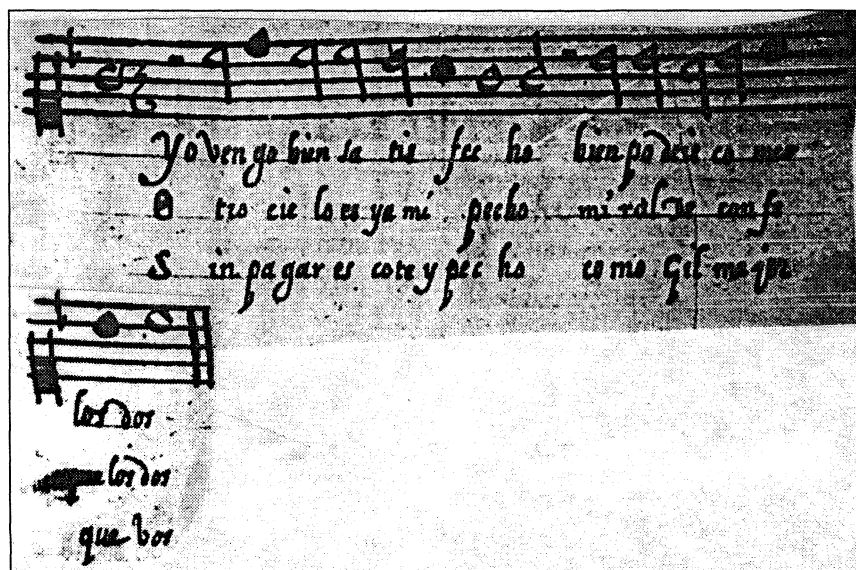 Yo ven go bien sa tis fec ho bien po deis co mer
O tro cie lo es ya mi pecho mi ral de con fe
S in pa gar es cote y pec ho co mo
lor dor
lor dor
que